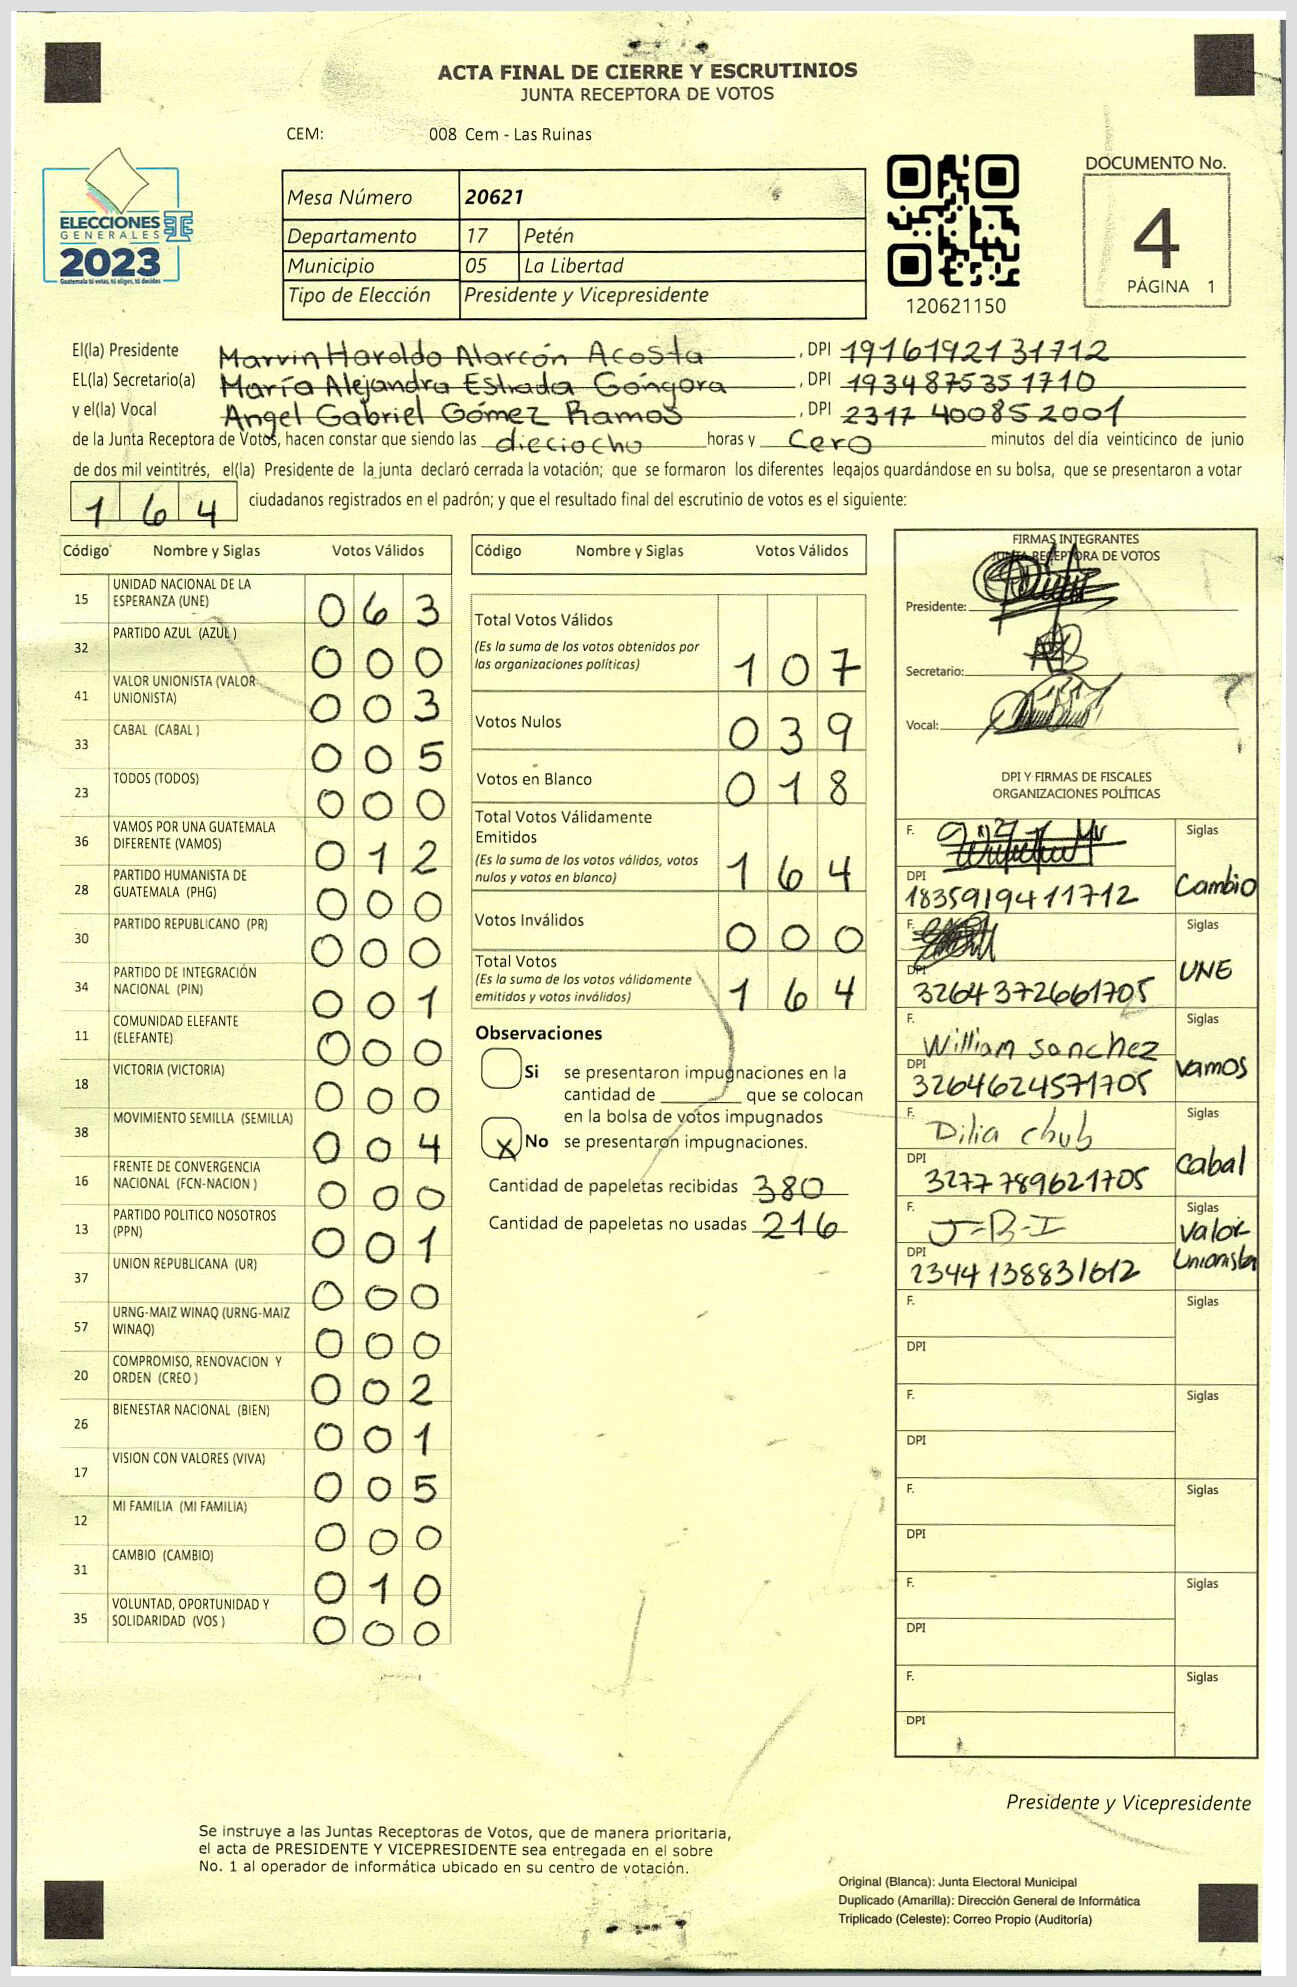 ACTA FINAL DE CIERRE Y ESCRUTINIOS
JUNTA RECEPTORA DE VOTOS
CEM: 008 Cem - Las Ruinas
ELECCIONES
GENERALES
2023
Guatemala tú votas, tú eliges, tú decides
Mesa Número 20621
Departamento 17 Petén
Municipio 05 La Libertad
Tipo de Elección Presidente y Vicepresidente
120621150
DOCUMENTO No.
4
PÁGINA 1
El(la) Presidente Marvin Haroldo Alarcón Acosta, DPI 1916192131712
EL(la) Secretario(a) María Alejandra Estrada Góngora, DPI 1934875351710
y el(la) Vocal Angel Gabriel Gómez Ramos, DPI 2317 400852001
de la Junta Receptora de Votos, hacen constar que siendo las dieciocho horas y Cero minutos del día veinticinco de junio
de dos mil veintitrés, el(la) Presidente de la junta declaró cerrada la votación; que se formaron los diferentes legajos guardándose en su bolsa, que se presentaron a votar
164 ciudadanos registrados en el padrón; y que el resultado final del escrutinio de votos es el siguiente:
Código Nombre y Siglas Votos Válidos
15 UNIDAD NACIONAL DE LA ESPERANZA (UNE) 063
32 PARTIDO AZUL (AZUL ) 000
41 VALOR UNIONISTA (VALOR UNIONISTA) 003
33 CABAL (CABAL ) 005
23 TODOS (TODOS) 000
36 VAMOS POR UNA GUATEMALA DIFERENTE (VAMOS) 012
28 PARTIDO HUMANISTA DE GUATEMALA (PHG) 000
30 PARTIDO REPUBLICANO (PR) 000
34 PARTIDO DE INTEGRACIÓN NACIONAL (PIN) 001
11 COMUNIDAD ELEFANTE (ELEFANTE) 000
18 VICTORIA (VICTORIA) 000
38 MOVIMIENTO SEMILLA (SEMILLA) 004
16 FRENTE DE CONVERGENCIA NACIONAL (FCN-NACION ) 000
13 PARTIDO POLITICO NOSOTROS (PPN) 001
37 UNION REPUBLICANA (UR) 000
57 URNG-MAIZ WINAQ (URNG-MAIZ WINAQ) 000
20 COMPROMISO, RENOVACION Y ORDEN (CREO ) 002
26 BIENESTAR NACIONAL (BIEN) 001
17 VISION CON VALORES (VIVA) 005
12 MI FAMILIA (MI FAMILIA) 000
31 CAMBIO (CAMBIO) 010
35 VOLUNTAD, OPORTUNIDAD Y SOLIDARIDAD (VOS ) 000
Código Nombre y Siglas Votos Válidos
Total Votos Válidos 107
(Es la suma de los votos obtenidos por
las organizaciones políticas)
Votos Nulos 039
Votos en Blanco 018
Total Votos Válidamente
Emitidos 164
(Es la suma de los votos válidos, votos
nulos y votos en blanco)
Votos Inválidos 000
Total Votos 164
(Es la suma de los votos válidamente
emitidos y votos inválidos)
Observaciones
Si se presentaron impugnaciones en la
cantidad de ________ que se colocan
en la bolsa de votos impugnados
X No se presentaron impugnaciones.
Cantidad de papeletas recibidas 380
Cantidad de papeletas no usadas 216
FIRMAS INTEGRANTES
JUNTA RECEPTORA DE VOTOS
Presidente:
Secretario:
Vocal:
DPI Y FIRMAS DE FISCALES
ORGANIZACIONES POLÍTICAS
F. Siglas
DPI 1835919411712 Cambio
F. Siglas
DPI 3264372661705 UNE
F. William sanchez Siglas
DPI 3264624571705 Vamos
F. Dilia chub Siglas
DPI 3277789621705 Cabal
F. J-B-I Siglas
DPI 2344138831612 Valor Unionista
F. Siglas
DPI
F. Siglas
DPI
F. Siglas
DPI
F. Siglas
DPI
F. Siglas
DPI
Presidente y Vicepresidente
Se instruye a las Juntas Receptoras de Votos, que de manera prioritaria,
el acta de PRESIDENTE Y VICEPRESIDENTE sea entregada en el sobre
No. 1 al operador de informática ubicado en su centro de votación.
Original (Blanca): Junta Electoral Municipal
Duplicado (Amarilla): Dirección General de Informática
Triplicado (Celeste): Correo Propio (Auditoría)